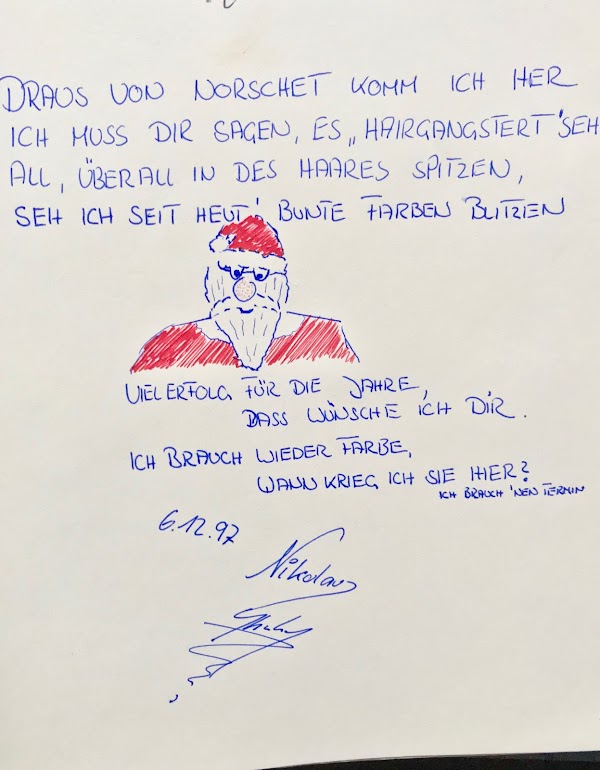 DRAUS VON NORSCHET KOMM ICH HER
ICH MUSS DIR SAGEN, ES „HAIRGANGSTERT" SEH
ALL, ÜBERALL IN DES HAARES SPITZEN,
SEH ICH SEIT HEUT' BUNTE FARBEN BLITZEN
VIEL ERFOLG FÜR DIE JAHRE,
DASS WÜNSCHE ICH DIR.
ICH BRAUCH WIEDER FARBE,
WANN KRIEG ICH SIE HIER?
ICH BRAUCH 'NEN TERMIN
6.12.97
Nikolaus